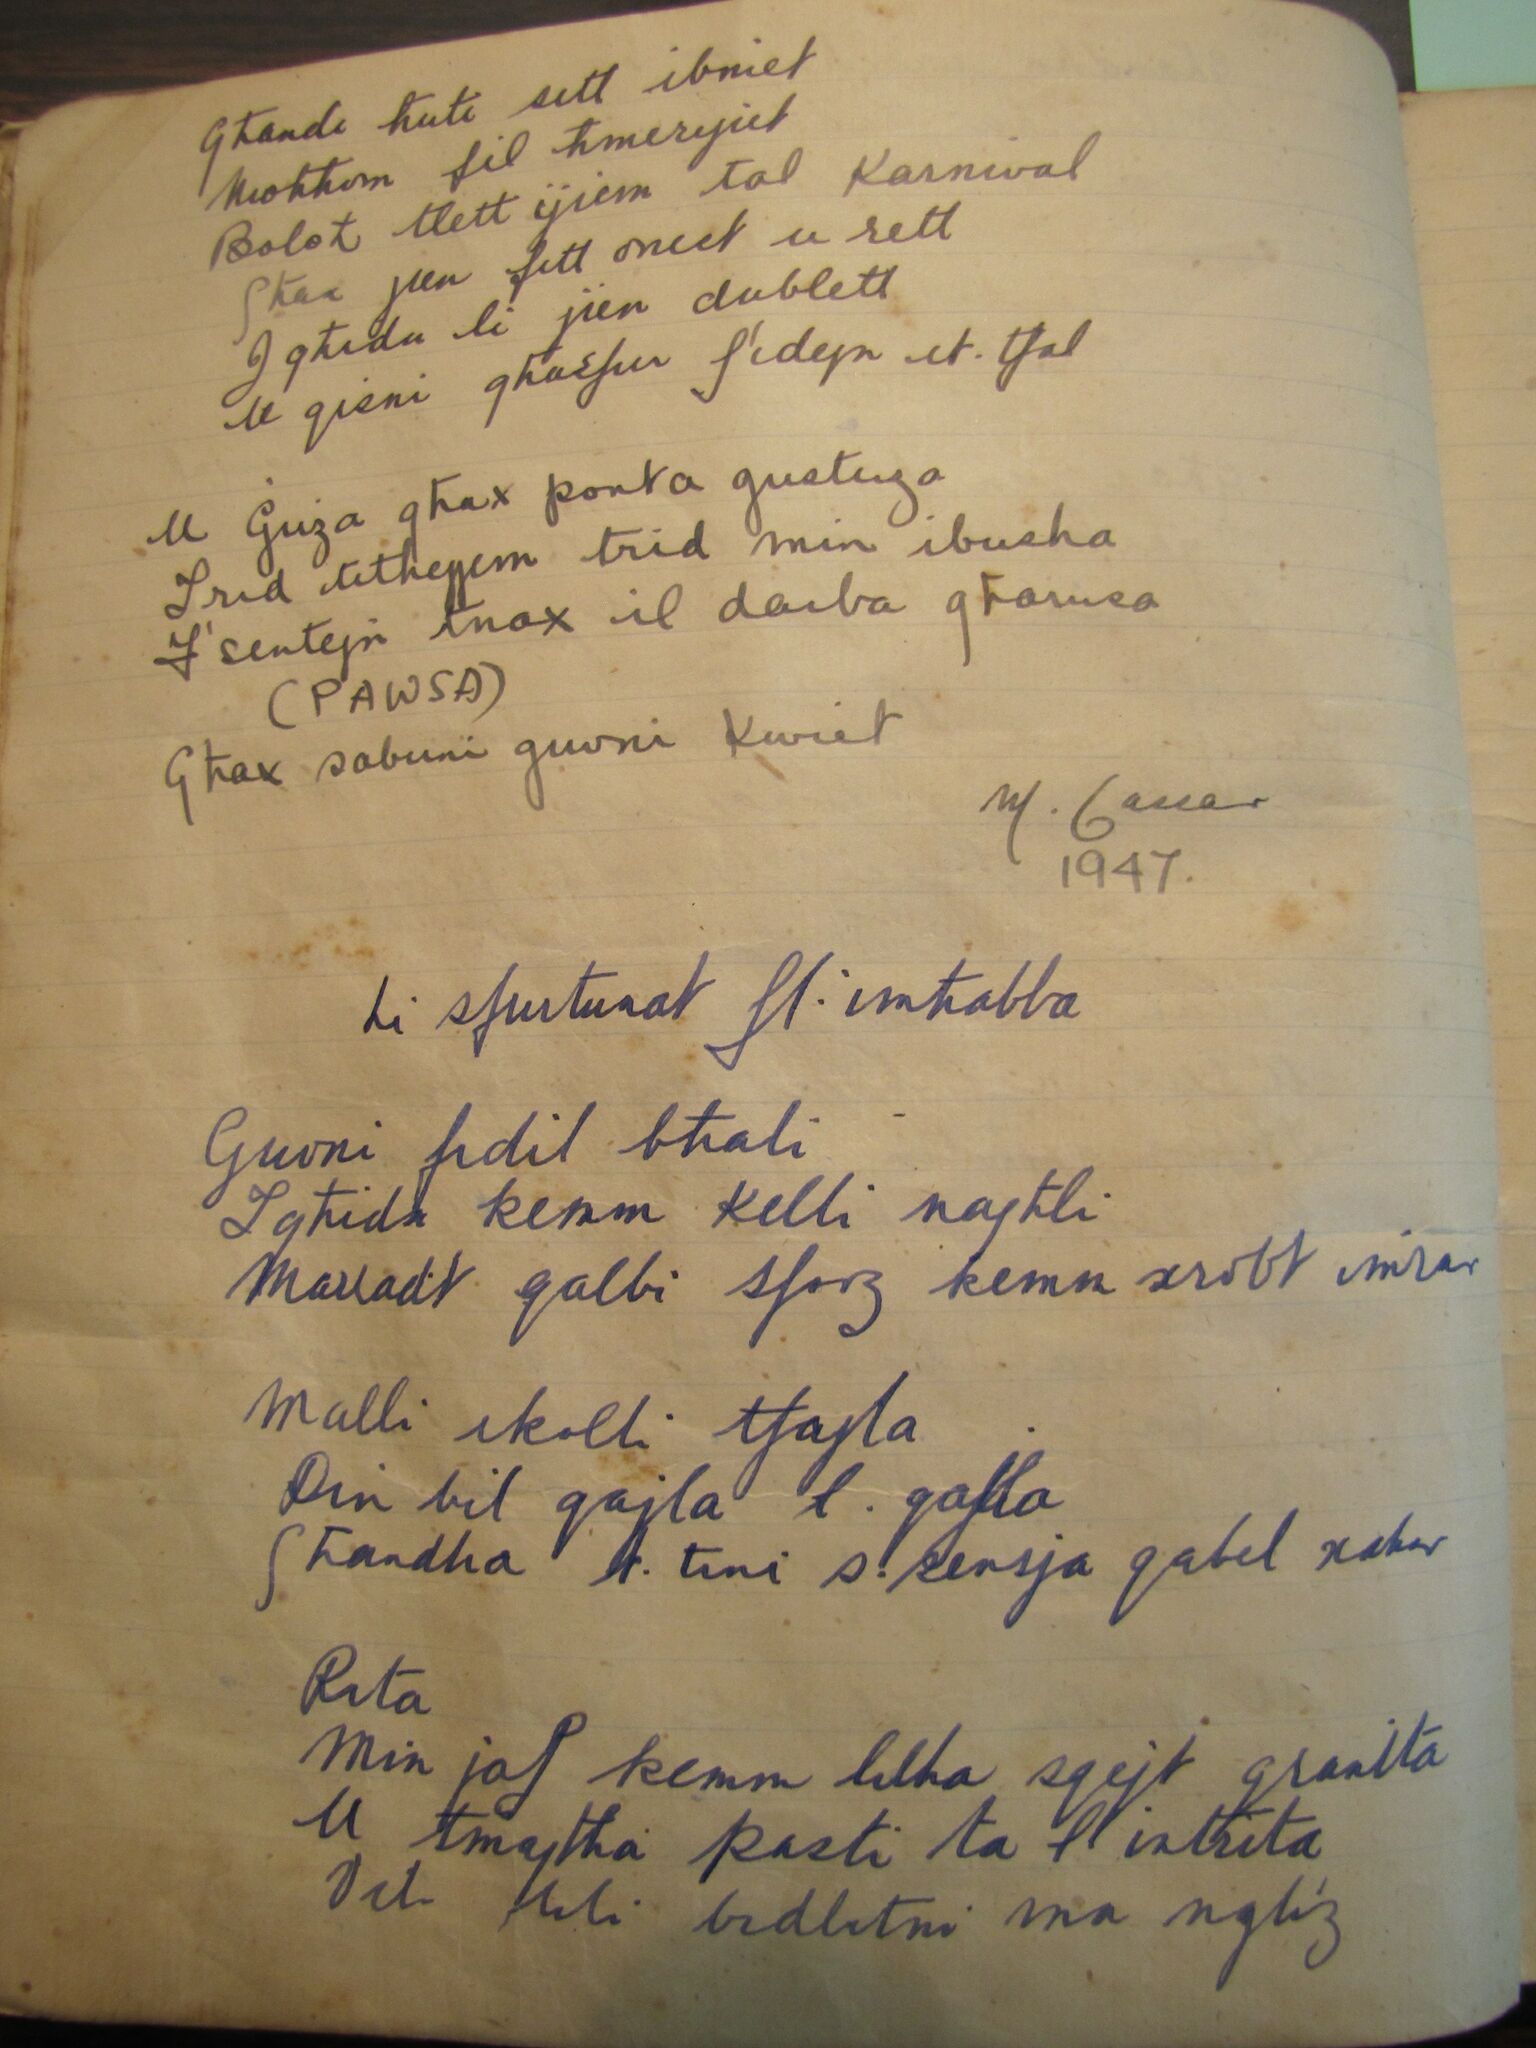 Għandi ħuti sitt ibniet
Moħħom fil ħmerijiet
Bolot tlett ijiem tal Karnival
Għax jien fitt oneet u rett
Jgħidu li jien dublett
U qisni għasfur f'idejn it. tfal
U Ġuża għax ponta gustuza
Trid titħejjem trid min ibusha
F'sentejn tnax il darba għarusa
(PAWSA)
Għax sabuni guvni Kwiet
M. Cassar
1947.
Li sfurtunat fl. imħabba
Guvni fidil bħali
Igħidu kemm Kelli nagħli
Marradt qalbi sforz kemm xrobt imrar
Malli ikolli tfajla
Din bil qajla l. qafla
Għandha t. tini s. sensja qabel xahar
Rita
Min jaf kemm lilha sqejt granita
U tmajtha pasti ta l'intrita
lili bidlitni ma ngliz